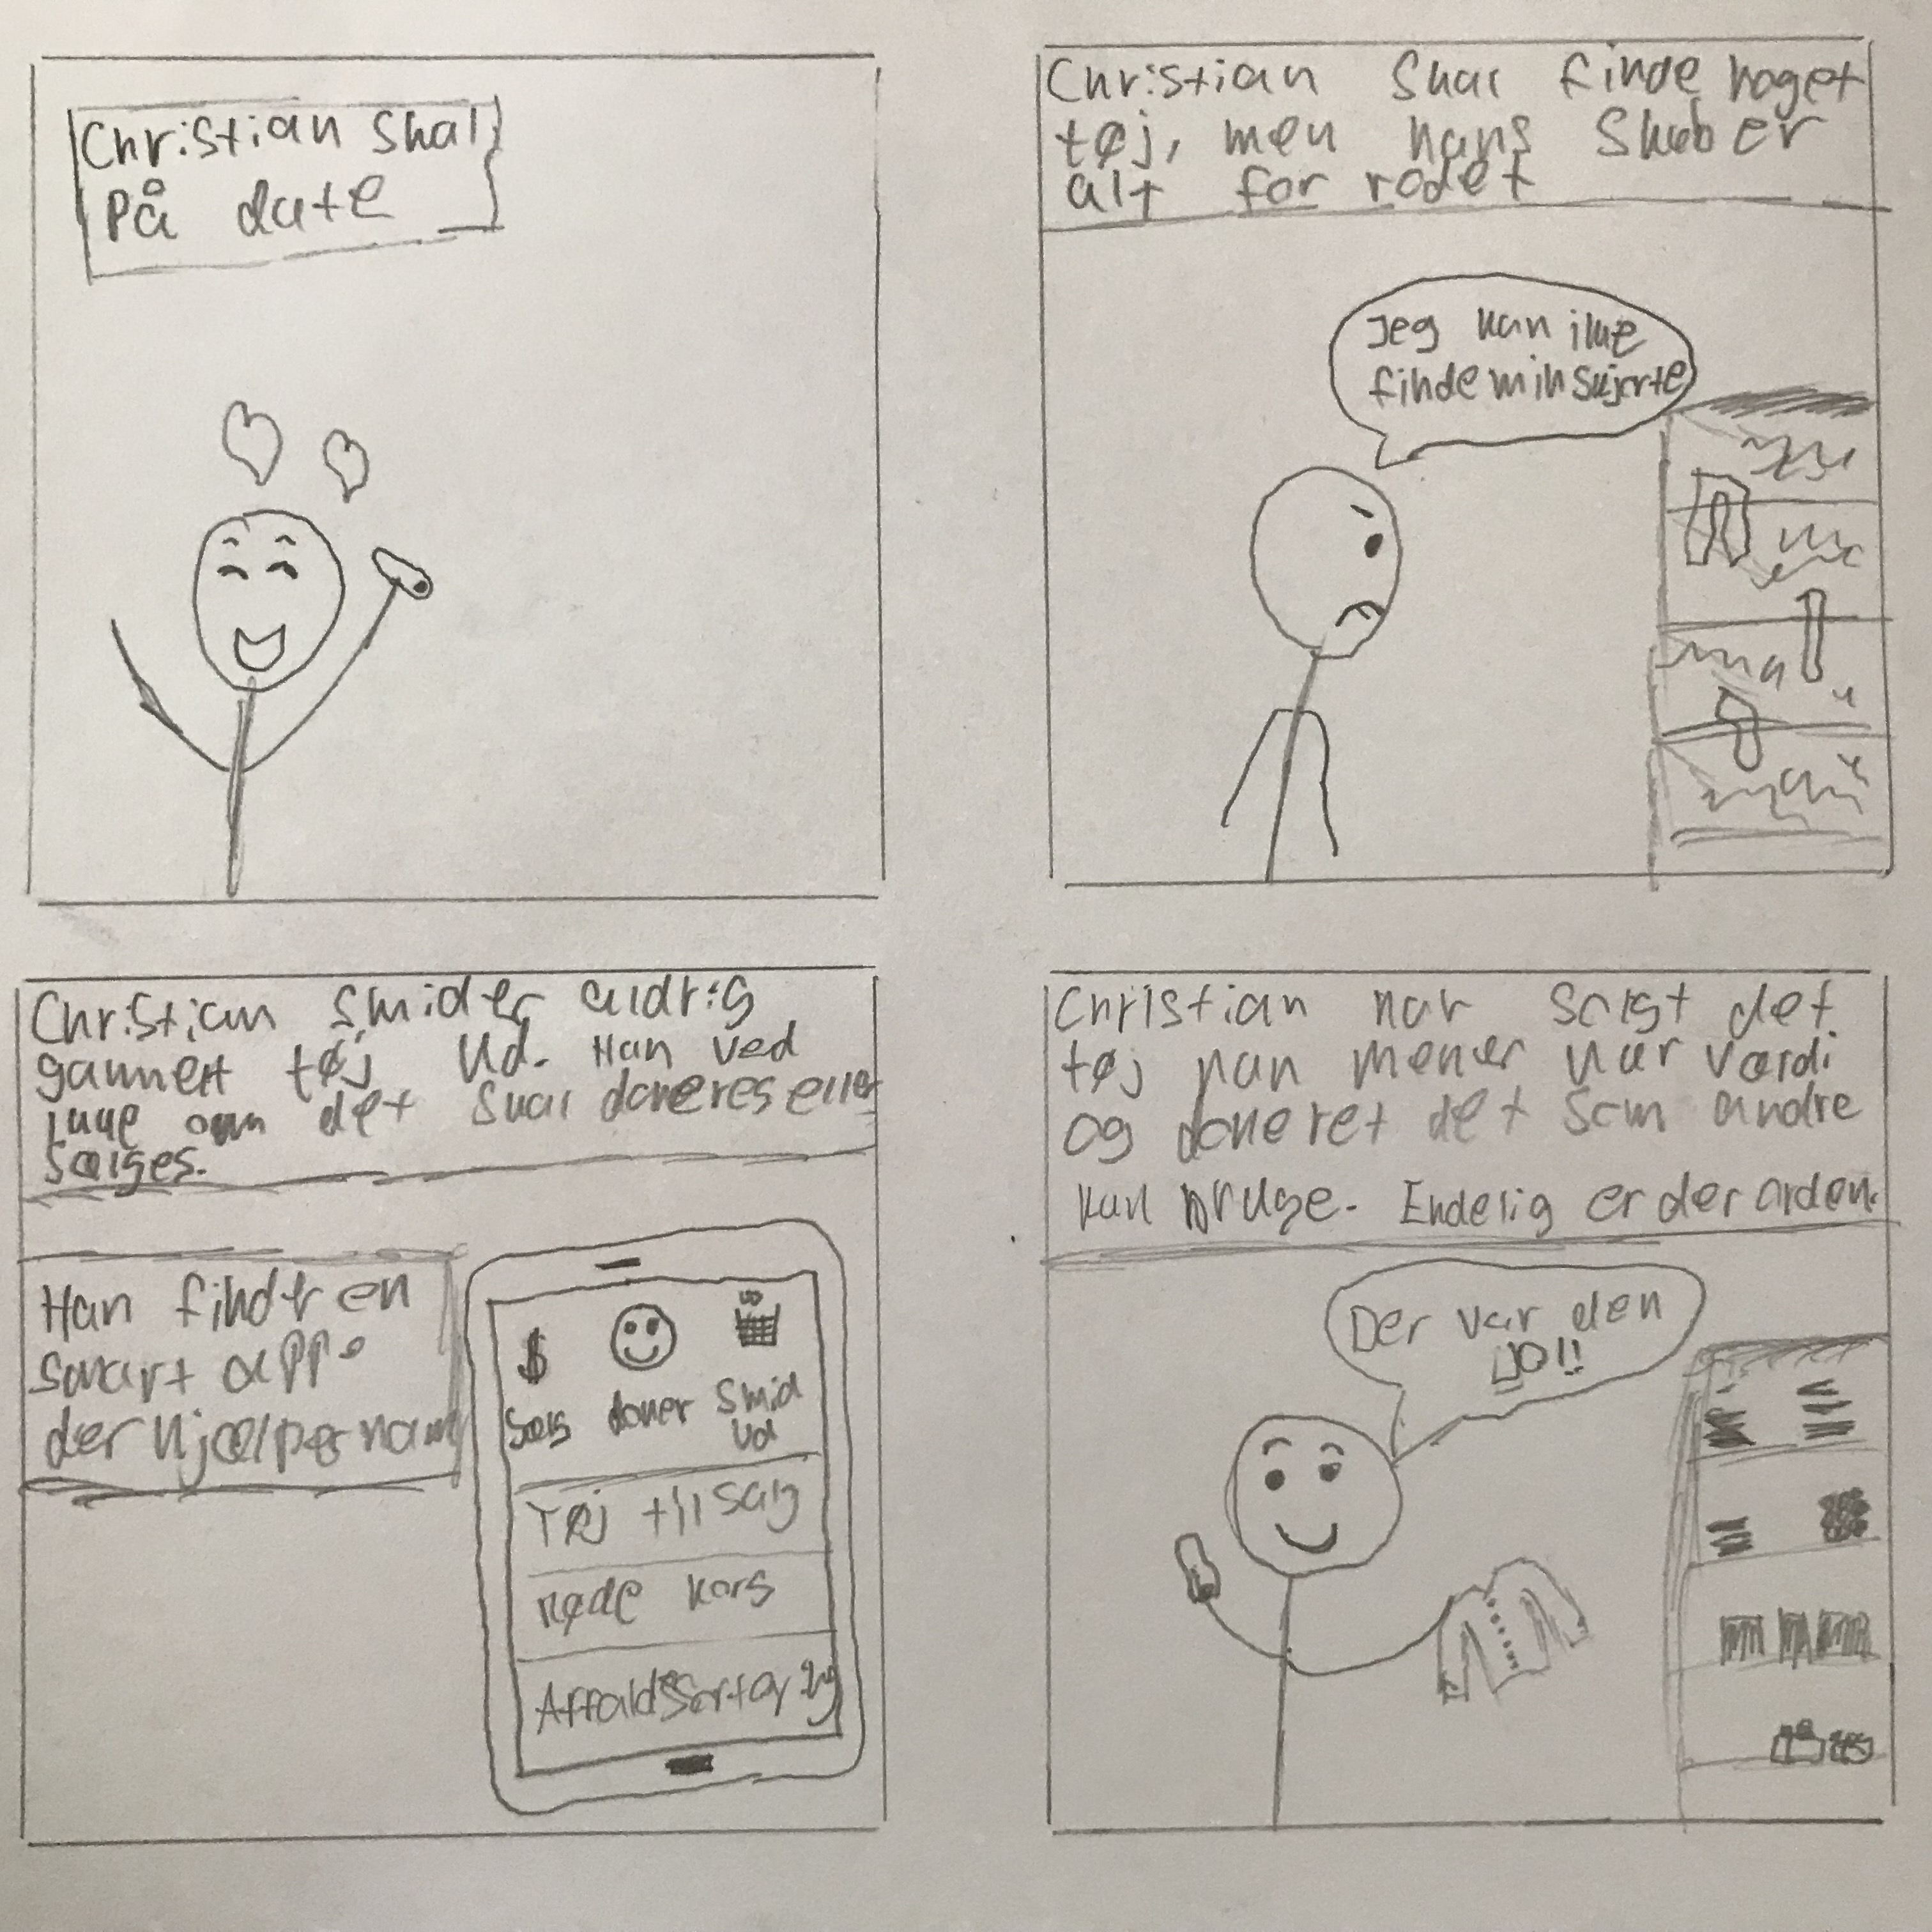 Christian skal
på date
Christian skal finde noget
tøj, men hans skab er
alt for rodet
Jeg kan ikke
finde min skjorte
Christian smider aldrig
gammelt tøj ud. Han ved
ikke om det skal doneres eller
sælges.
Han finder en
smart app.
der hjælper ham
$
sælg doner smid
ud
Tøj til salg
Røde kors
Affaldssortering
Christian har solgt det
tøj han mener har værdi
og doneret det som andre
kan bruge. Endelig er der orden.
Der var den
jo!!